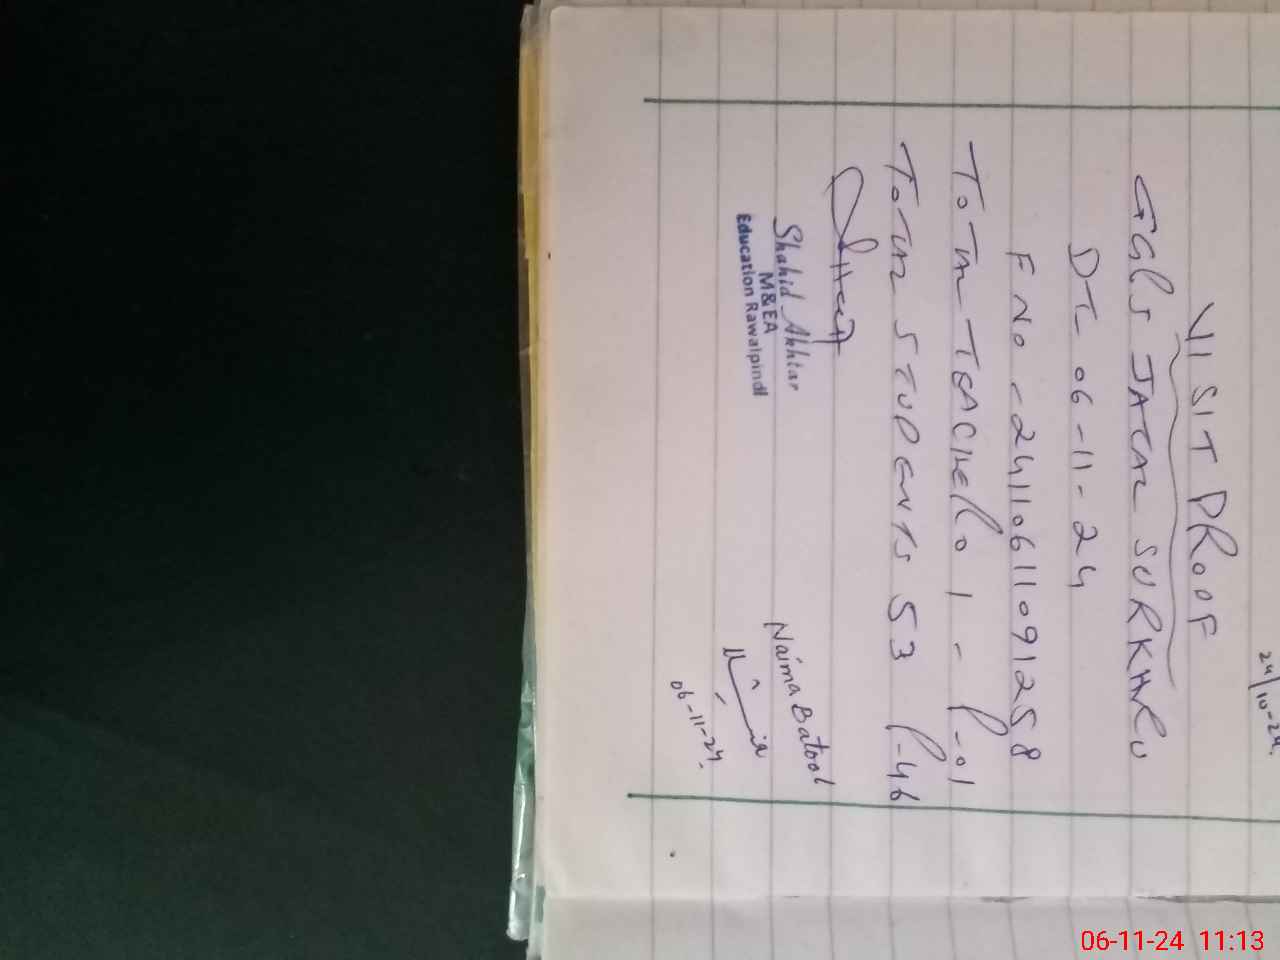 24/10-24.
VISIT PROOF
GGPS JATAL SURKHRU
DT 06-11-24
F NO - 24110611091258
TOTAL TEACHER 01 - P-01
TOTAL STUDENTS 53 P-46
Shahid Akhtar
M&EA
Education Rawalpindi
Naima Batool
06-11-24.
06-11-24 11:13